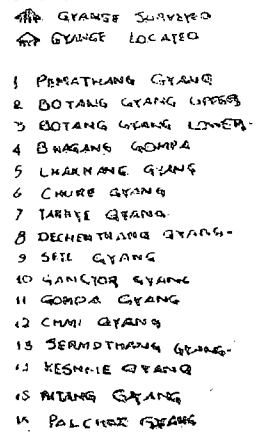 GYANGE SURVEYED
GYANGE LOCATED
1 PEMATHANG GYANG
2 BOTANG GYANG UPPER
3 BOTANG GYANG LOWER
4 BHAGANG GOMPA
5 LHAKHANG GYANG
6 CHURE GYANG
7 GYANG
8 DECHENTHANG GYANG
9 GYANG
10 GYANG
11 GOMPA GYANG
12 CHMI GYANG
13 SERMOTHANG GYANG
14 GYANG
15 GYANG
16 PALCHOK GYANG